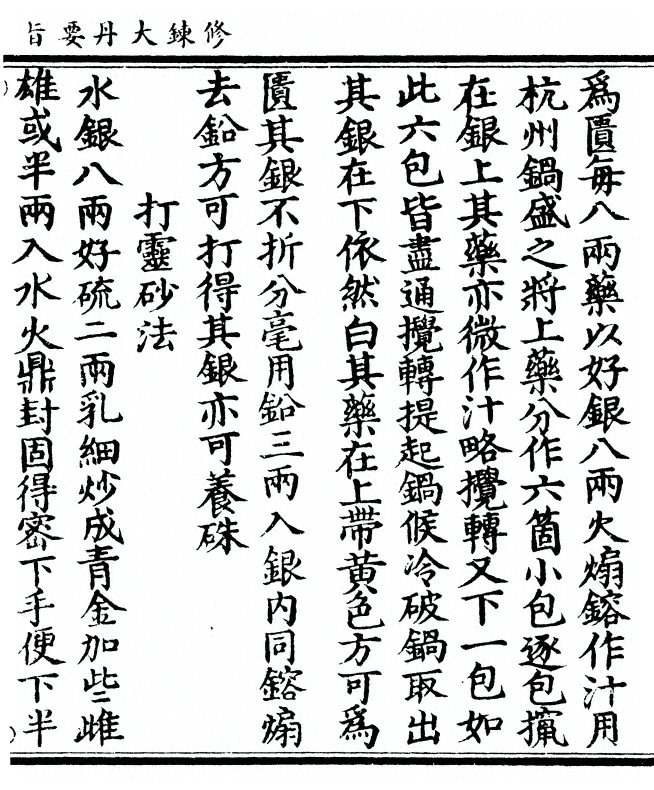 修鍊大丹要旨
為匱每八兩藥以好銀八兩火煽鎔作汁用
杭州鍋盛之將上藥分作六箇小包逐包攛
在銀上其藥亦微作汁略攪轉又下一包如
此六包皆盡通攪轉提起鍋候冷破鍋取出
其銀在下依然白其藥在上帶黃色方可為
匱其銀不折分毫用鉛三兩入銀內同鎔煽
去鉛方可打得其銀亦可養硃
打靈砂法
水銀八兩好硫二兩乳細炒成青金加些雌
雄或半兩入水火鼎封固得密下手便下半